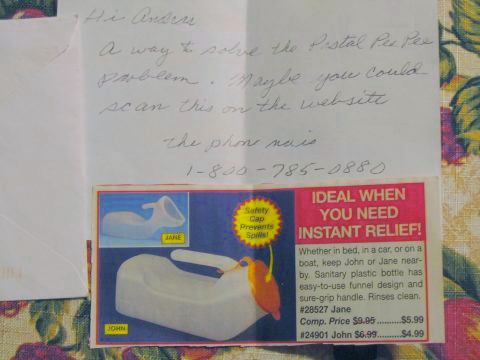 Hi Andru
A way to solve the Postal Pee Pee
Problem. Maybe you could
scan this on the website
the phon nuis
1-800-785-0880
JANE
Safety
Cap
Prevents
Spills!
JOHN
IDEAL WHEN
YOU NEED
INSTANT RELIEF!
Whether in bed, in a car, or on a
boat, keep John or Jane near-
by. Sanitary plastic bottle has
easy-to-use funnel design and
sure-grip handle. Rinses clean.
#28527 Jane
Comp. Price $9.95..........$5.99
#24901 John $6.99..........$4.99